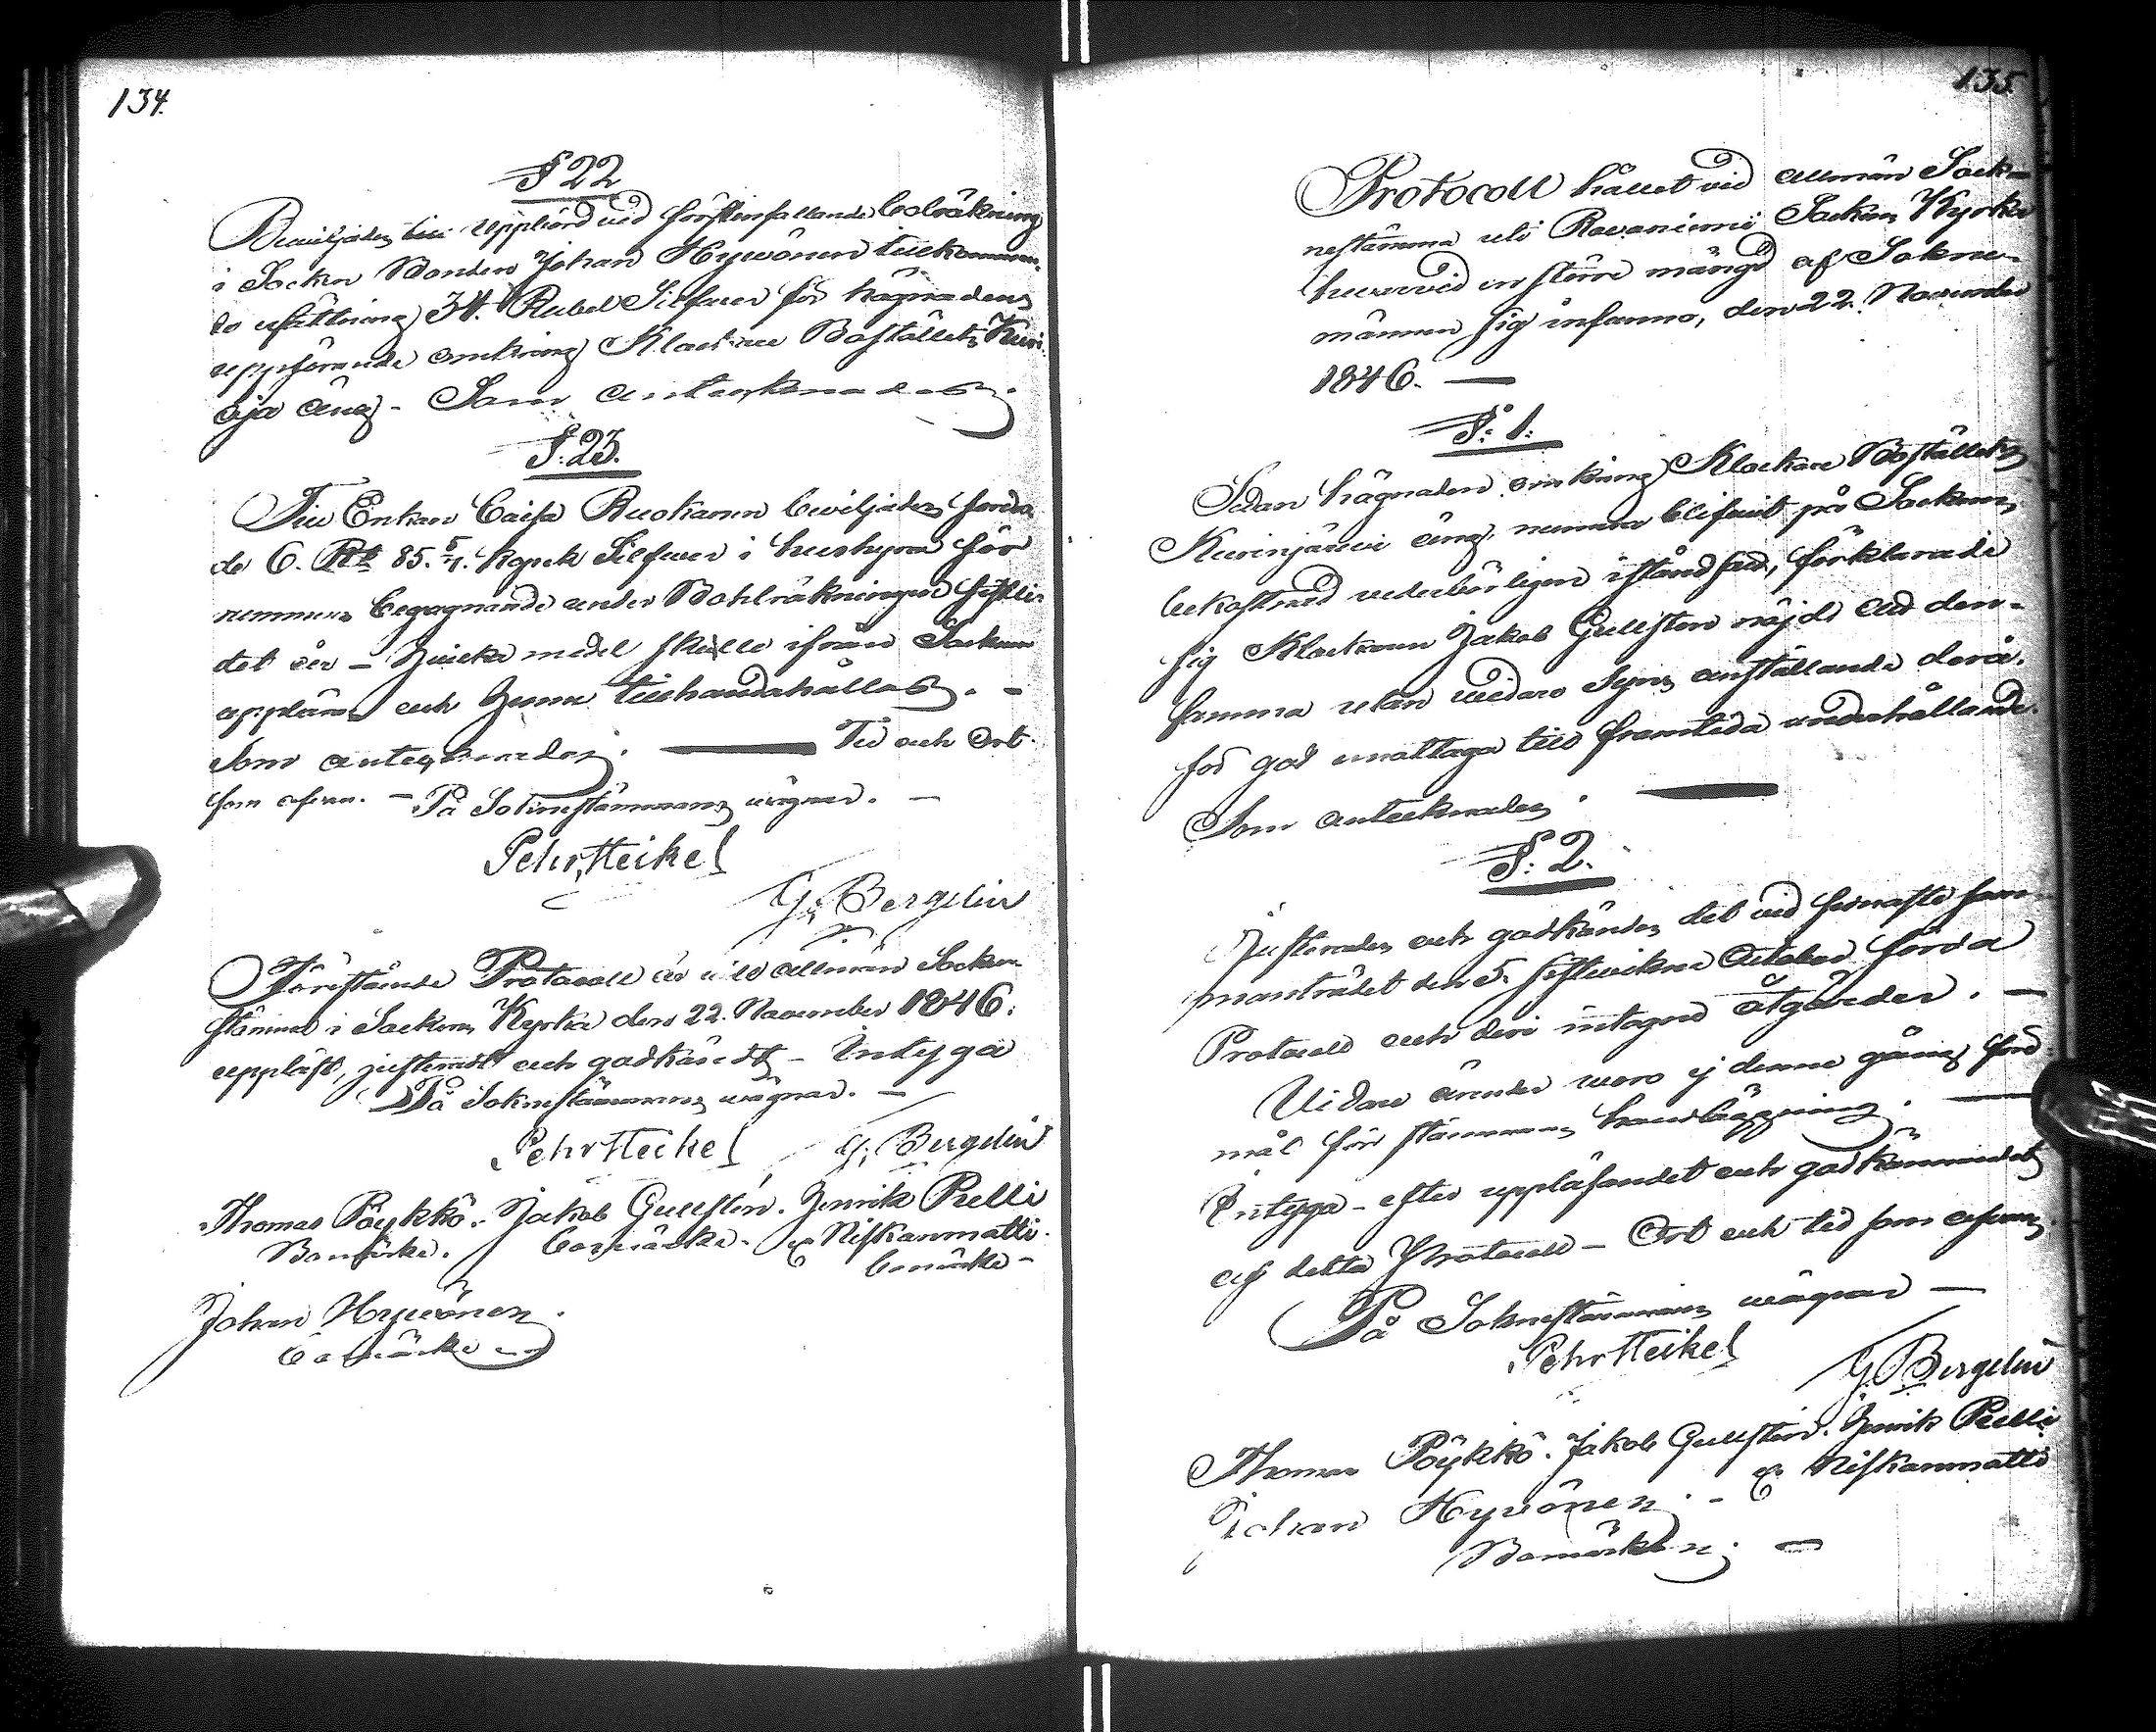 134.
§ 22
Beviljades till uppbörd vid förstinfallande bolräkning
i Socken Bonden Johan Hyvönen tillkomman-
de ersättning 34. Rubel Silfver för hägnadens
uppförande omkring Klockare Boställets Kuri-
oja äng. - Som antecknades.
§. 23.
Till Enkan Caisa Ruokanen beviljades fordra-
de 6. Rbl 85. 5/7. kopek Silfver i hushyra för
rummens begagnande under Bohlräkningen sistli-
det år - Hvilka medel skulle ifrån Socknen
uppbäras och henne tillhandahållas. -
Som antecknades. Tid och Ort
som ofvan. - På Soknestämmans vägnar. -
Pehr Heikel
G. Bergelin
Förestående Protocoll är vid allmän Sockne-
stämma i Sockens Kyrka den 22. November 1846.
uppläst, justeradt och godkändt - Intyga
På Soknestämmans vägnar. -
Pehr Heikel G. Bergelin
Thomas Pöykkö. Jakob Gullstén. Henrik Pelli
Bomärke. bomärke. E Niskanmatti.
bomärke -
Johan Hyvönen.
bomärke
135.
Protocoll hållet vid allmän Sock-
nestämma uti Rovaniemi Sockens Kyrka
hvarvid en större mängd af Sokne-
männen sig infunno, den 22. November
1846. -
§. 1.
Sedan hägnaden omkring Klockare Boställets
Kurinjärvi äng, numera blifvit på Socknens
bekostnad vederbörligen istånd satt, förklarade
sig Klockaren Jakob Gullsten nöjd att den-
samma utan vidare Syns anställande derå.
för god emottaga till framtida underhållande.
Som antecknades.
§. 2.
Justerades och godkändes det vid sednaste sam-
manträdet den 5. sistvikne October förda
Protocoll och deri intagne åtgärder. -
Vidare ärender voro ej denna gång före-
mål för stämmans handläggning. -
Intyga - efter uppläsandet och godkännandet
af detta Protocoll - Ort och tid som ofvan.
På Soknestämmans vägnar -
Pehr Heikel
G. Bergelin
Thomas Pöykkö. Jakob Gullstén. Henrik Pelli.
Johan Hyvönen. - E Niskanmatti
Bomärken. -